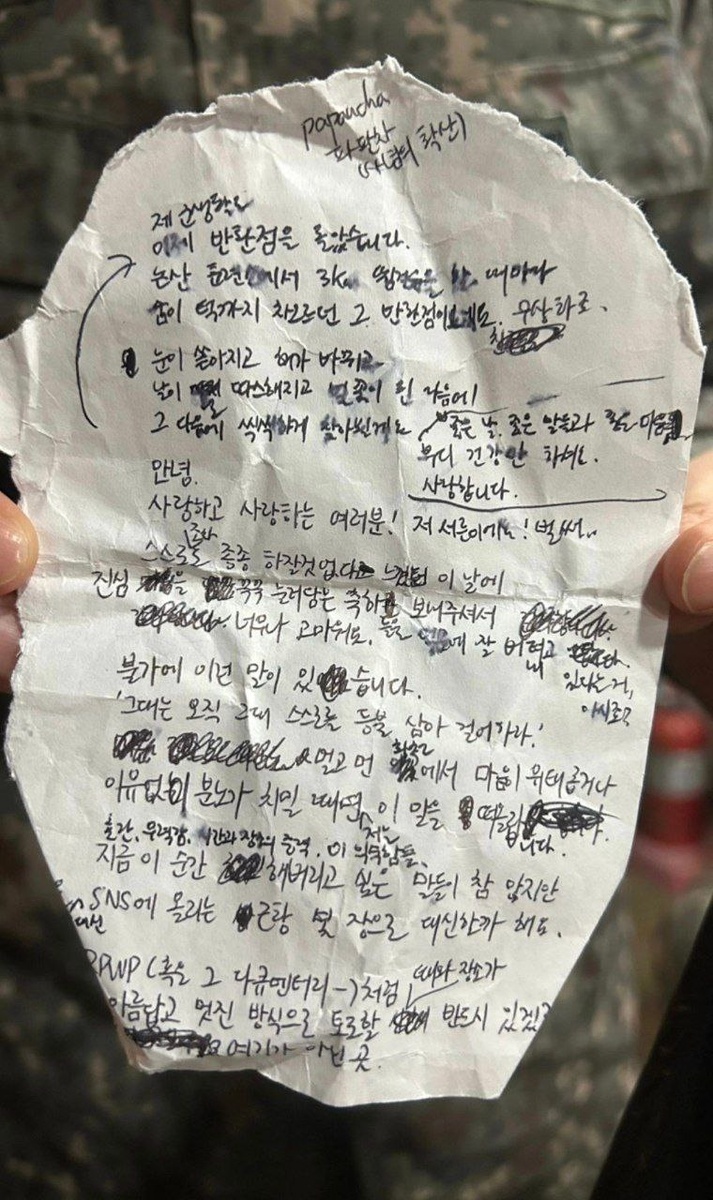 papancha
파판차
(사념의 확산)
제 군생활도
이제 반환점을 돌았습니다.
논산 훈련소에서 3km 뜀걸음을 할 때마다
숨이 턱까지 차오르던 그 반환점이로군요.
눈이 쏟아지고 해가 바뀌고
날이 따스해지고 벚꽃이 핀 다음에
그 다음에 씩씩하게 찾아뵐게요
좋은 날, 좋은 말들과 좋은 마음
부디 건강만 하셔요.
사랑합니다.
안녕.
사랑하고 사랑하는 여러분! 저 서른이에요! 벌써..
스스로 종종 하잘것없다 느껴 이 날에
진심을 꾹꾹 눌러담은 축하 보내주셔서
너무나 고마워요. 잘 버티고
있다는 거,
아시로구
불가에 이런 말이 있습니다.
'그대는 오직 그대 스스로를 등불 삼아 걸어하라.'
멀고 먼 에서 마음이 위태롭거나
이유없이 분노가 치밀 때면, 저는 이 말을 떠올립니다.
혼란, 무력감, 시간과 장소의 출력, 이 위독함들.
지금 이 순간 해버리고 싶은 말들이 참 많지만
대신 SNS에 올리는 근황 몇 장으로 대신할까 해요.
RPWP (혹은 그 다큐멘터리-)처럼 때와 장소가
아름답고 멋진 방식으로 토로할 반드시 있겠
여기가 아닌 곳.